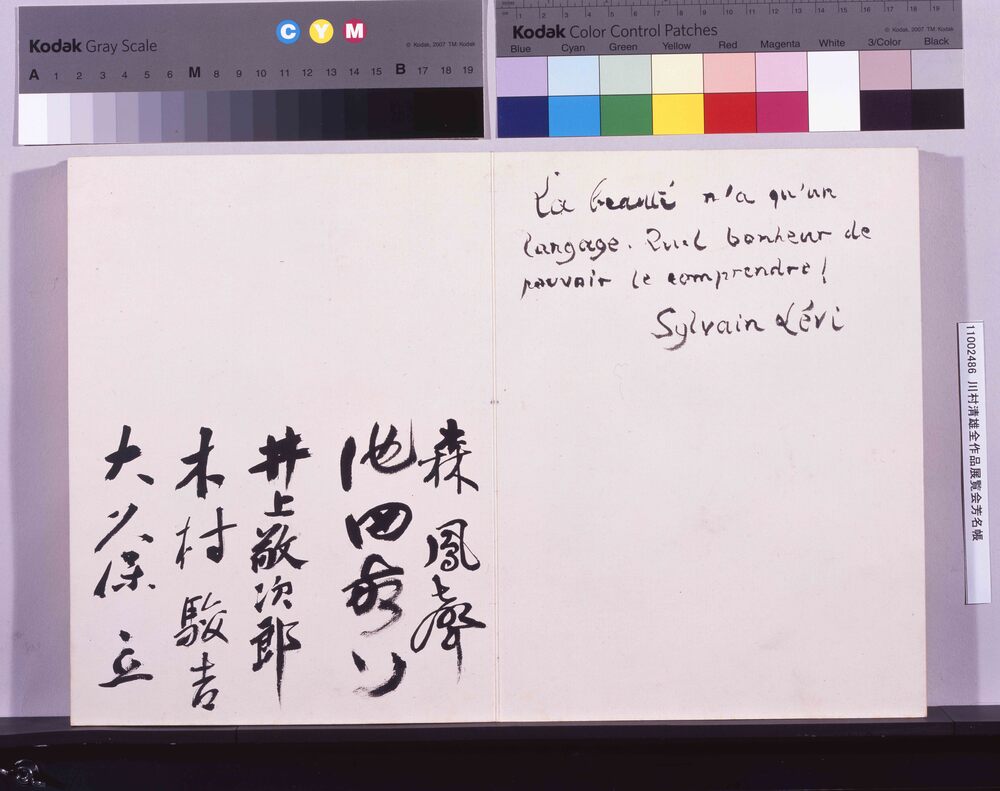 Kodak Gray Scale
C Y M
© Kodak, 2007 TM: Kodak
A 1 2 3 4 5 6 M 8 9 10 11 12 13 14 15 B 17 18 19
1 2 3 4 5 6 7 8 9 10 11 12 13 14 15 16 17 18 19
Kodak Color Control Patches
© Kodak, 2007 TM: Kodak
Blue Cyan Green Yellow Red Magenta White 3/Color Black
La beauté n'a qu'un
langage. Quel bonheur de
pouvoir le comprendre!
Sylvain Lévi
森鳳聲
池田
井上敬次郎
木村駿吉
大久保立
11002486 川村清雄全作品展覧会芳名帳